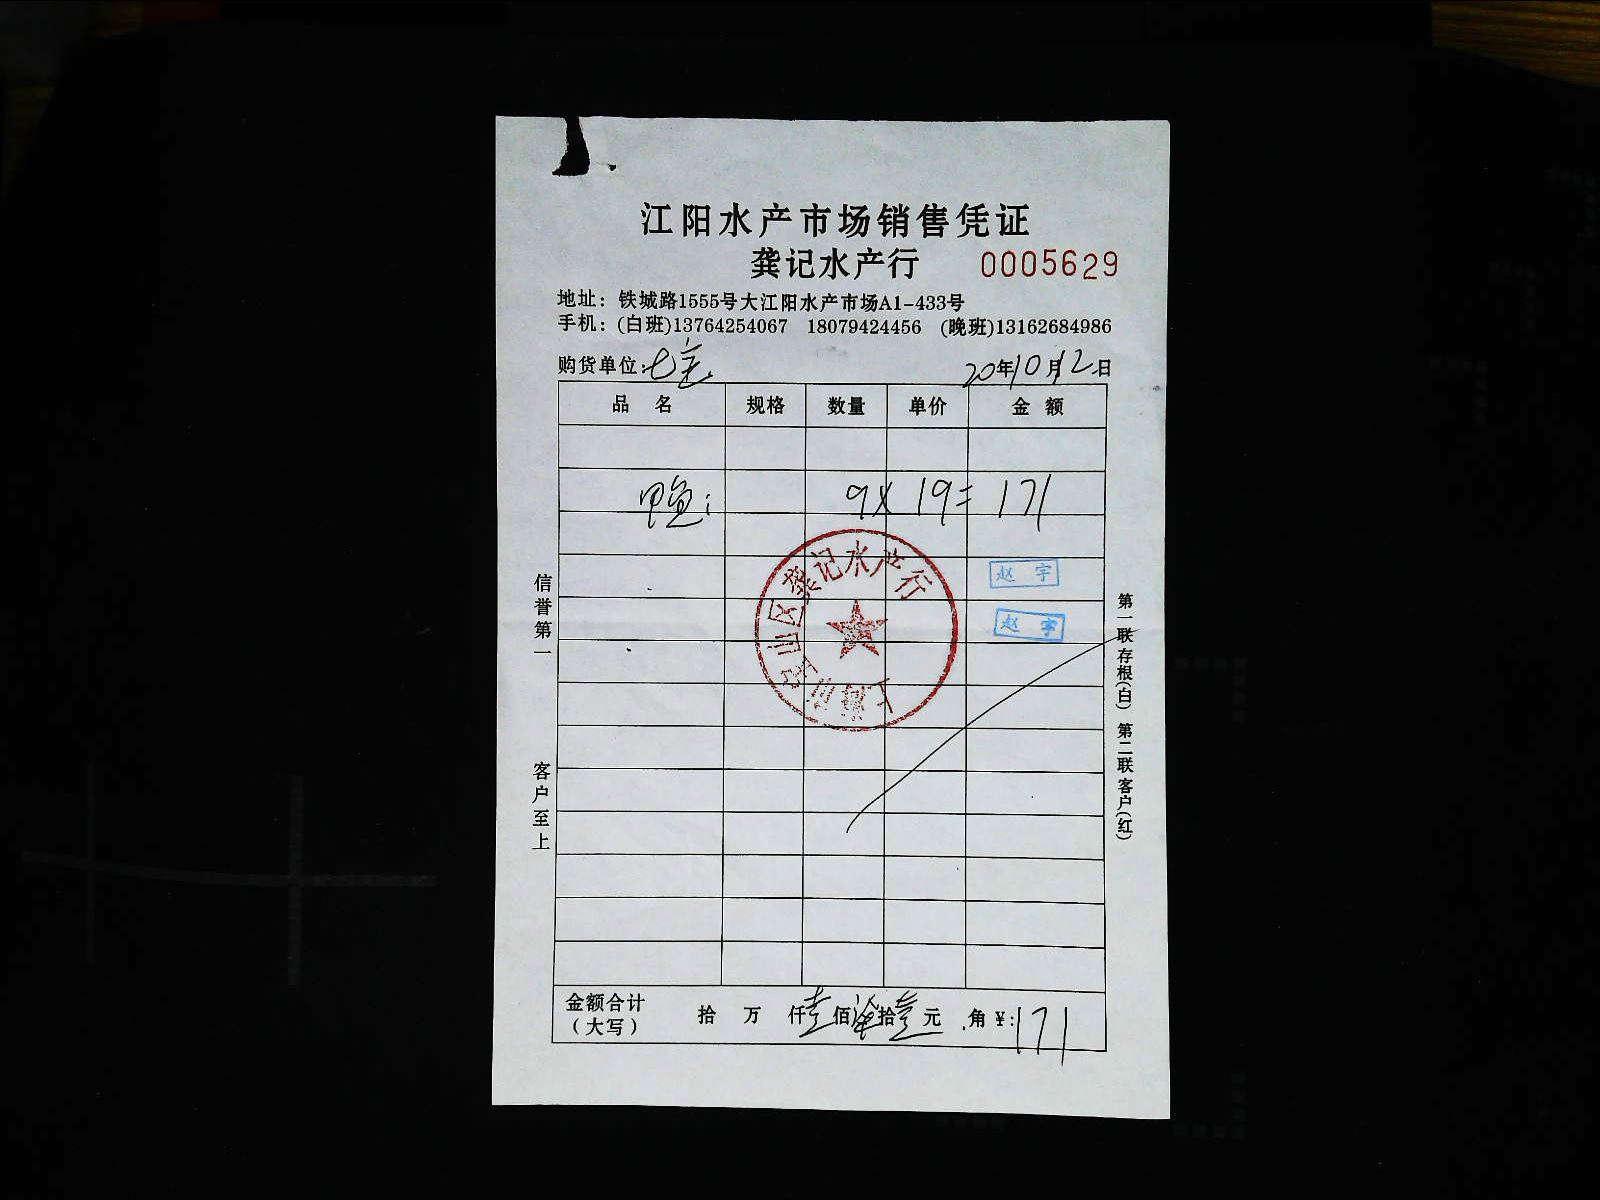 江阳水产市场销售凭证
龚记水产行 0005629
地址：铁城路1555号大江阳水产市场A1-433号
手机：(白班)13764254067 18079424456 (晚班)13162684986
购货单位：七宝 20年10月12日
品名 规格 数量 单价 金额
9X 19= 171
龚记水产行
赵宇
赵宇
信誉第一
客户至上
第一联存根(白) 第二联客户(红)
金额合计（大写） 拾 万 仟壹佰柒拾壹元 角￥:171